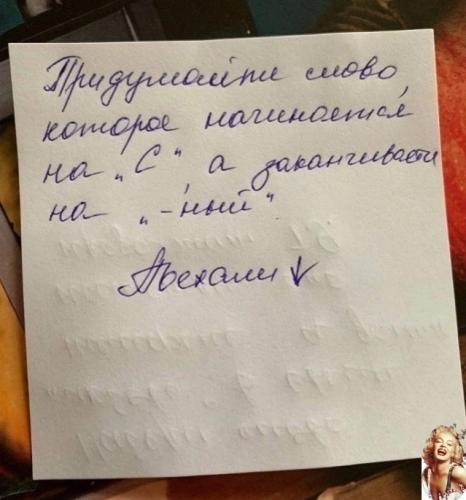 Придумайте слово,
которое начинается
на „С", а заканчивается
на „-ный"
Поехали ↓